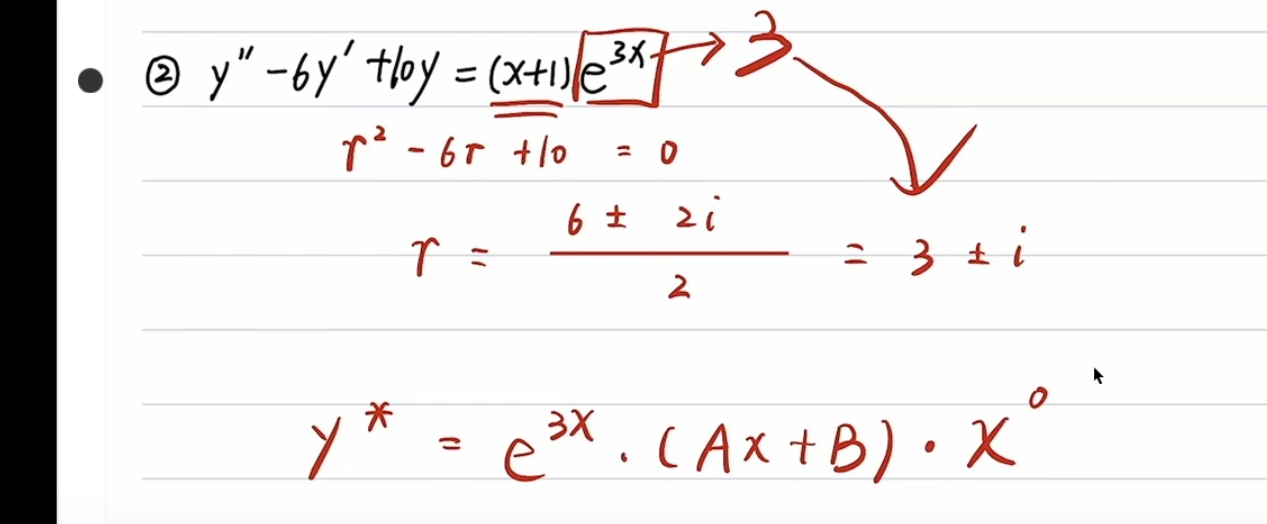 ② y″ - 6y′ + 10y = (x+1) e^{3x} → 3
r² - 6r + 10 = 0
r = \frac{6 ± 2i}{2} = 3 ± i
y* = e^{3x} · (Ax + B) · x^0